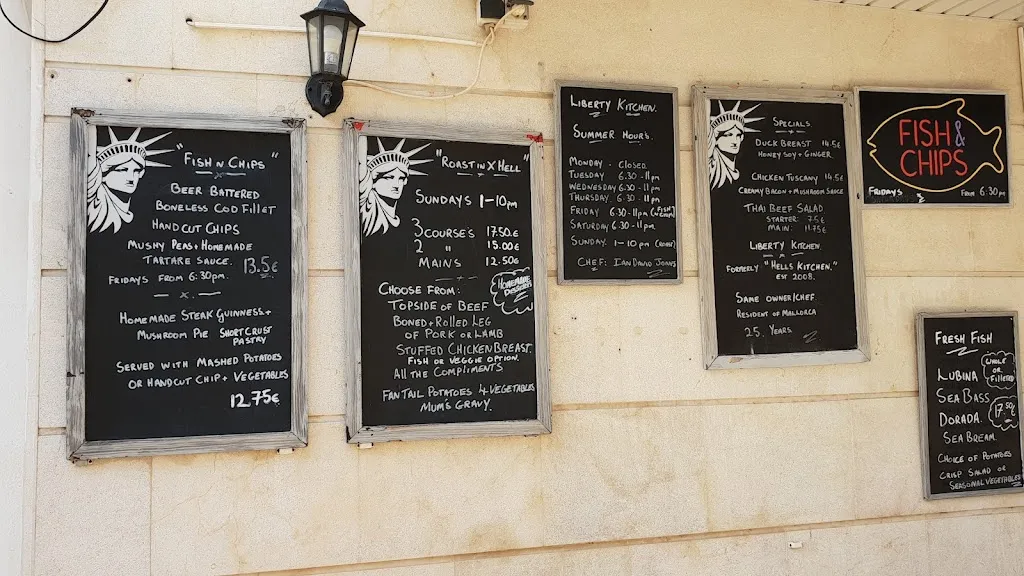 "Fish n Chips"
Beer Battered
Boneless Cod Fillet
Handcut Chips
Mushy Peas + Homemade
Tartare Sauce. 13.5€
Fridays from 6:30pm.
Homemade Steak Guinness +
Mushroom Pie Shortcrust
Pastry
Served with Mashed Potatoes
or Handcut Chip + Vegetables
12.75€
"Roast in X Hell"
Sundays 1-10pm
3 Course's 17.50€
2 " 15.00€
Mains 12.50€
Homemade
Desserts
Choose From:
Topside of Beef
Boned + Rolled Leg
of Pork or Lamb
Stuffed Chicken Breast.
Fish or Veggie Option.
All the Compliments
Fantail Potatoes 4 Vegetables
Mum's Gravy.
Liberty Kitchen.
Summer Hours.
Monday - Closed
Tuesday 6.30-11pm
Wednesday 6.30-11pm
Thursday. 6.30-11pm
Friday 6.30-11pm
Saturday 6.30-11pm
Sunday. 1-10pm (Roast)
Chef: Ian David Jones
Specials
Duck Breast 14.5€
Honey Soy + Ginger.
Chicken Tuscany 14.5€
Creamy Bacon + Mushroom Sauce
Thai Beef Salad
Starter: 7.5€
Main: 11.75€
Liberty Kitchen.
Formerly "Hells Kitchen."
Est 2008.
Same Owner/Chef
Resident of Mallorca
25 Years
FISH &
CHIPS
Fridays From 6:30pm
Fresh Fish
Whole
or
Filleted
Lubina
Sea Bass
Dorada. 17.50€
Sea Bream.
Choice of Potatoes
Crisp Salad or
Seasonal Vegetables